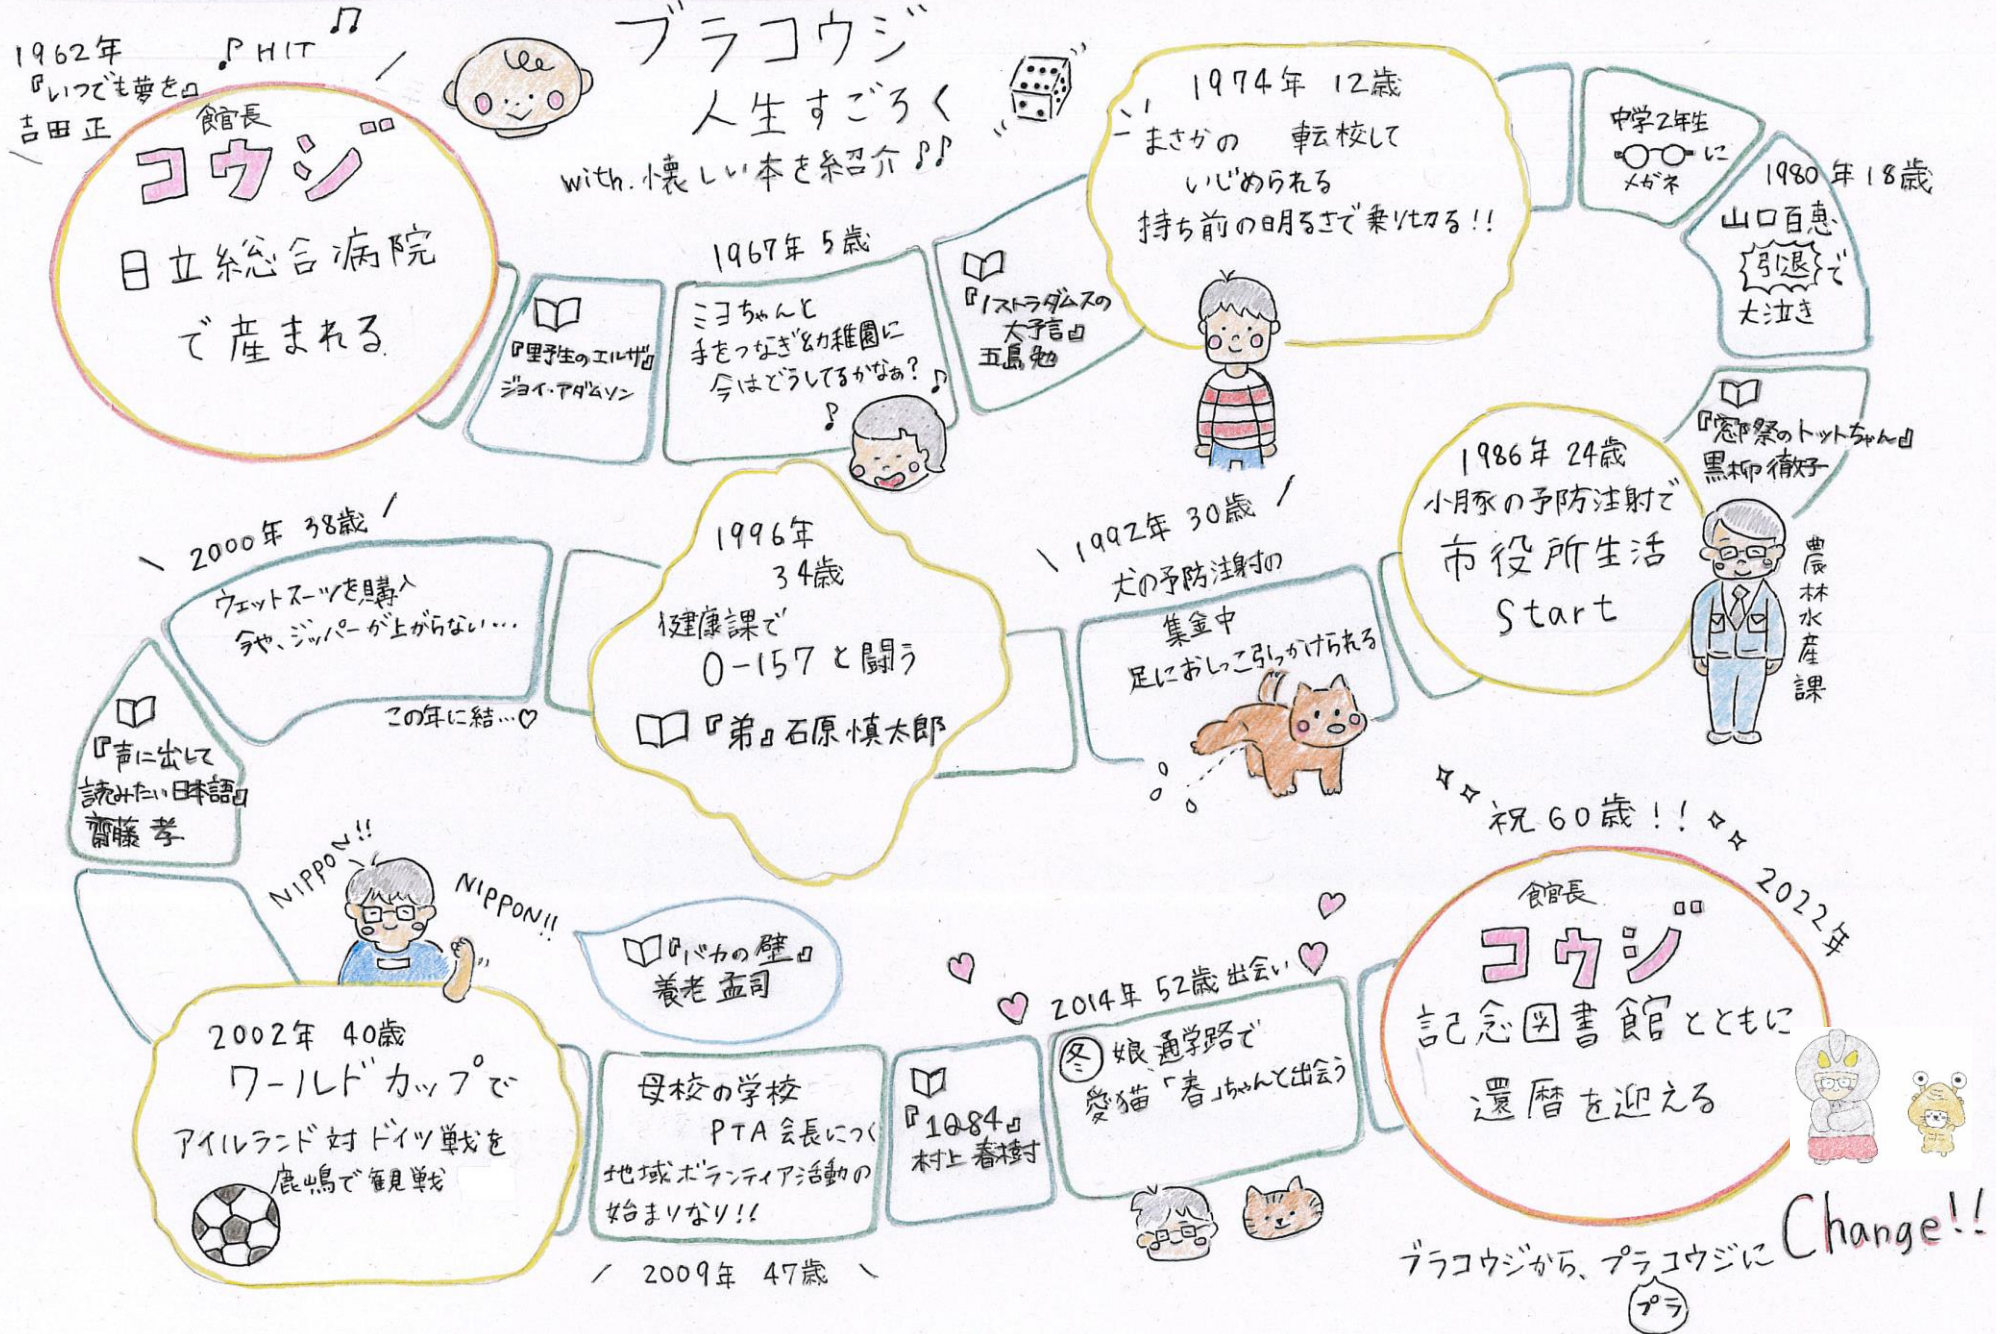 ブラコウジ
人生すごろく
with.懐しい本を紹介♪♪
1962年
『いつでも夢を』
吉田正
♪HIT
館長
コウジ
日立総合病院
で産まれる
『野生のエルザ』
ジョイ・アダムソン
1967年 5歳
ミヨちゃんと
手をつなぎ幼稚園に
今はどうしてるかなぁ?
『ノストラダムスの
大予言』
五島勉
1974年 12歳
まさかの 転校して
いじめられる
持ち前の明るさで乗り切る!!
中学2年生
に
メガネ
1980年18歳
山口百恵
引退で
大泣き
『窓際のトットちゃん』
黒柳徹子
1986年 24歳
小豚の予防注射で
市役所生活
Start
農林水産課
1992年 30歳
犬の予防注射の
集金中
足におしっこ引っかけられる
1996年
34歳
健康課で
O-157と闘う
『弟』石原慎太郎
2000年 38歳
ウェットスーツを購入
今や、ジッパーが上がらない…
この年に結…♡
『声に出して
読みたい日本語』
齋藤 孝
NIPPON!!
NIPPON!!
2002年 40歳
ワールドカップで
アイルランド対ドイツ戦を
鹿嶋で観戦
『バカの壁』
養老孟司
母校の学校
PTA会長につく
地域ボランティア活動の
始まりなり!!
2009年 47歳
『1Q84』
村上春樹
2014年 52歳出会い
冬 娘、通学路で
愛猫「春」ちゃんと出会う
祝60歳!!
2022年
館長
コウジ
記念図書館とともに
還暦を迎える
ブラコウジから、プラコウジに
Change!!
プラ